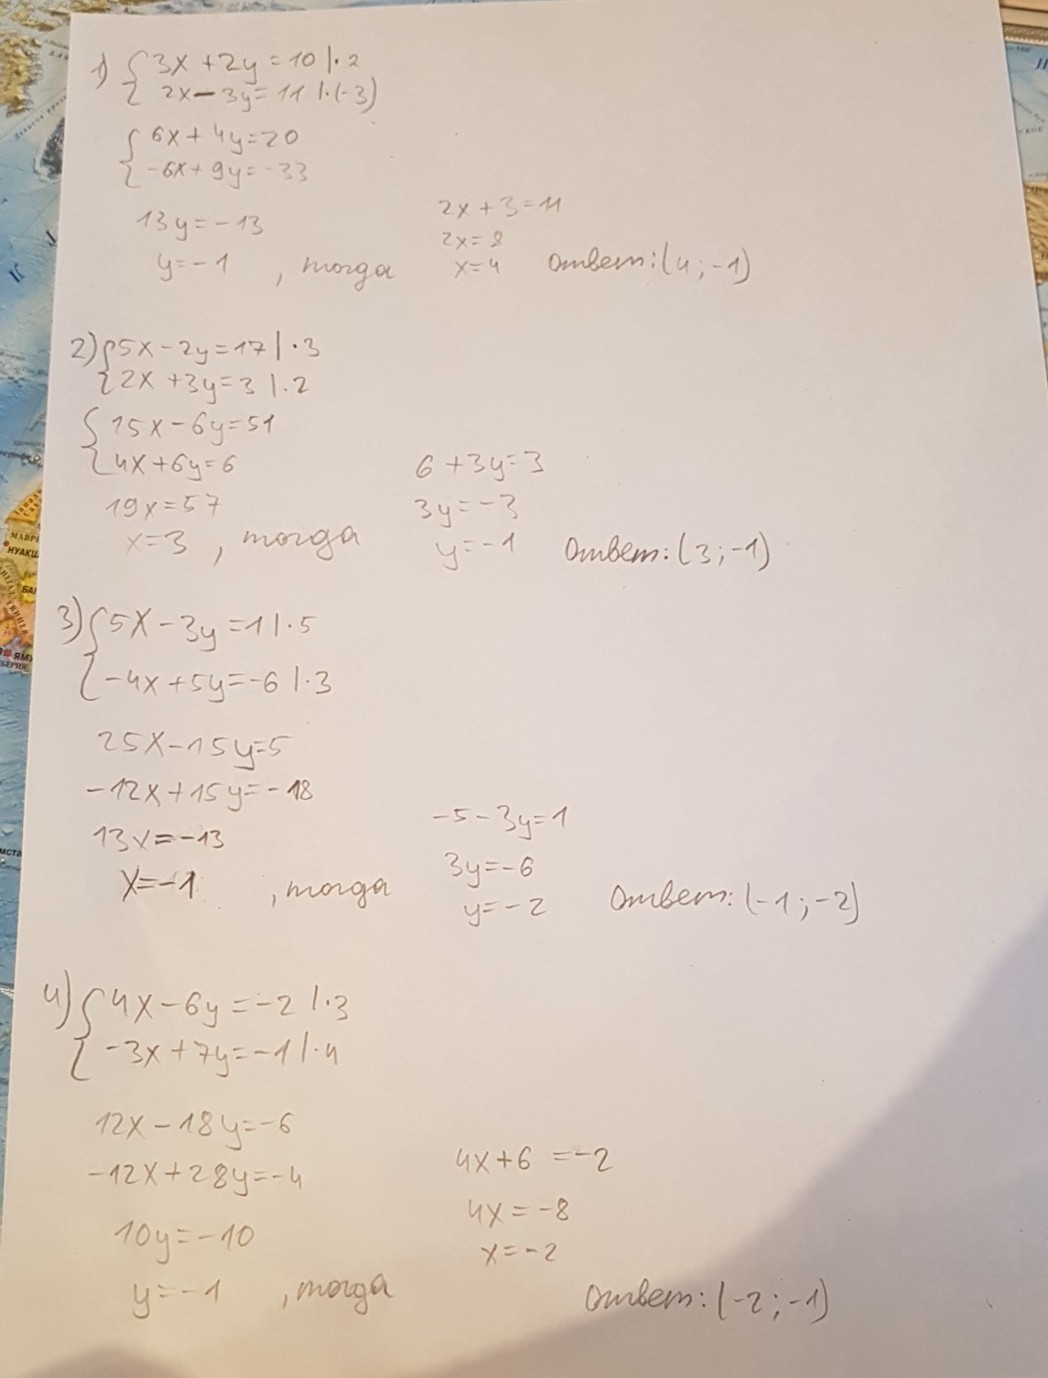 1) { 3x + 2y = 10 |· 2
2x - 3y = 11 |·(-3)
{ 6x + 4y = 20
-6x + 9y = -33
13y = -13
y = -1 , тогда
2x + 3 = 11
2x = 8
x = 4
Ответ: (4 ; -1)
2) { 5x - 2y = 17 | · 3
2x + 3y = 3 |. 2
{ 15x - 6y = 51
4x + 6y = 6
19x = 57
x = 3 , тогда
6 + 3y = 3
3y = -3
y = -1
Ответ: (3 ; -1)
3) { 5x - 3y = 1 |· 5
-4x + 5y = -6 |· 3
25x - 15y = 5
-12x + 15y = -18
13x = -13
x = -1 , тогда
-5 - 3y = 1
3y = -6
y = -2
Ответ: (-1 ; -2)
4) { 4x - 6y = -2 |· 3
-3x + 7y = -1 |· 4
12x - 18y = -6
-12x + 28y = -4
10y = -10
y = -1 , тогда
4x + 6 = -2
4x = -8
x = -2
Ответ: (-2 ; -1)